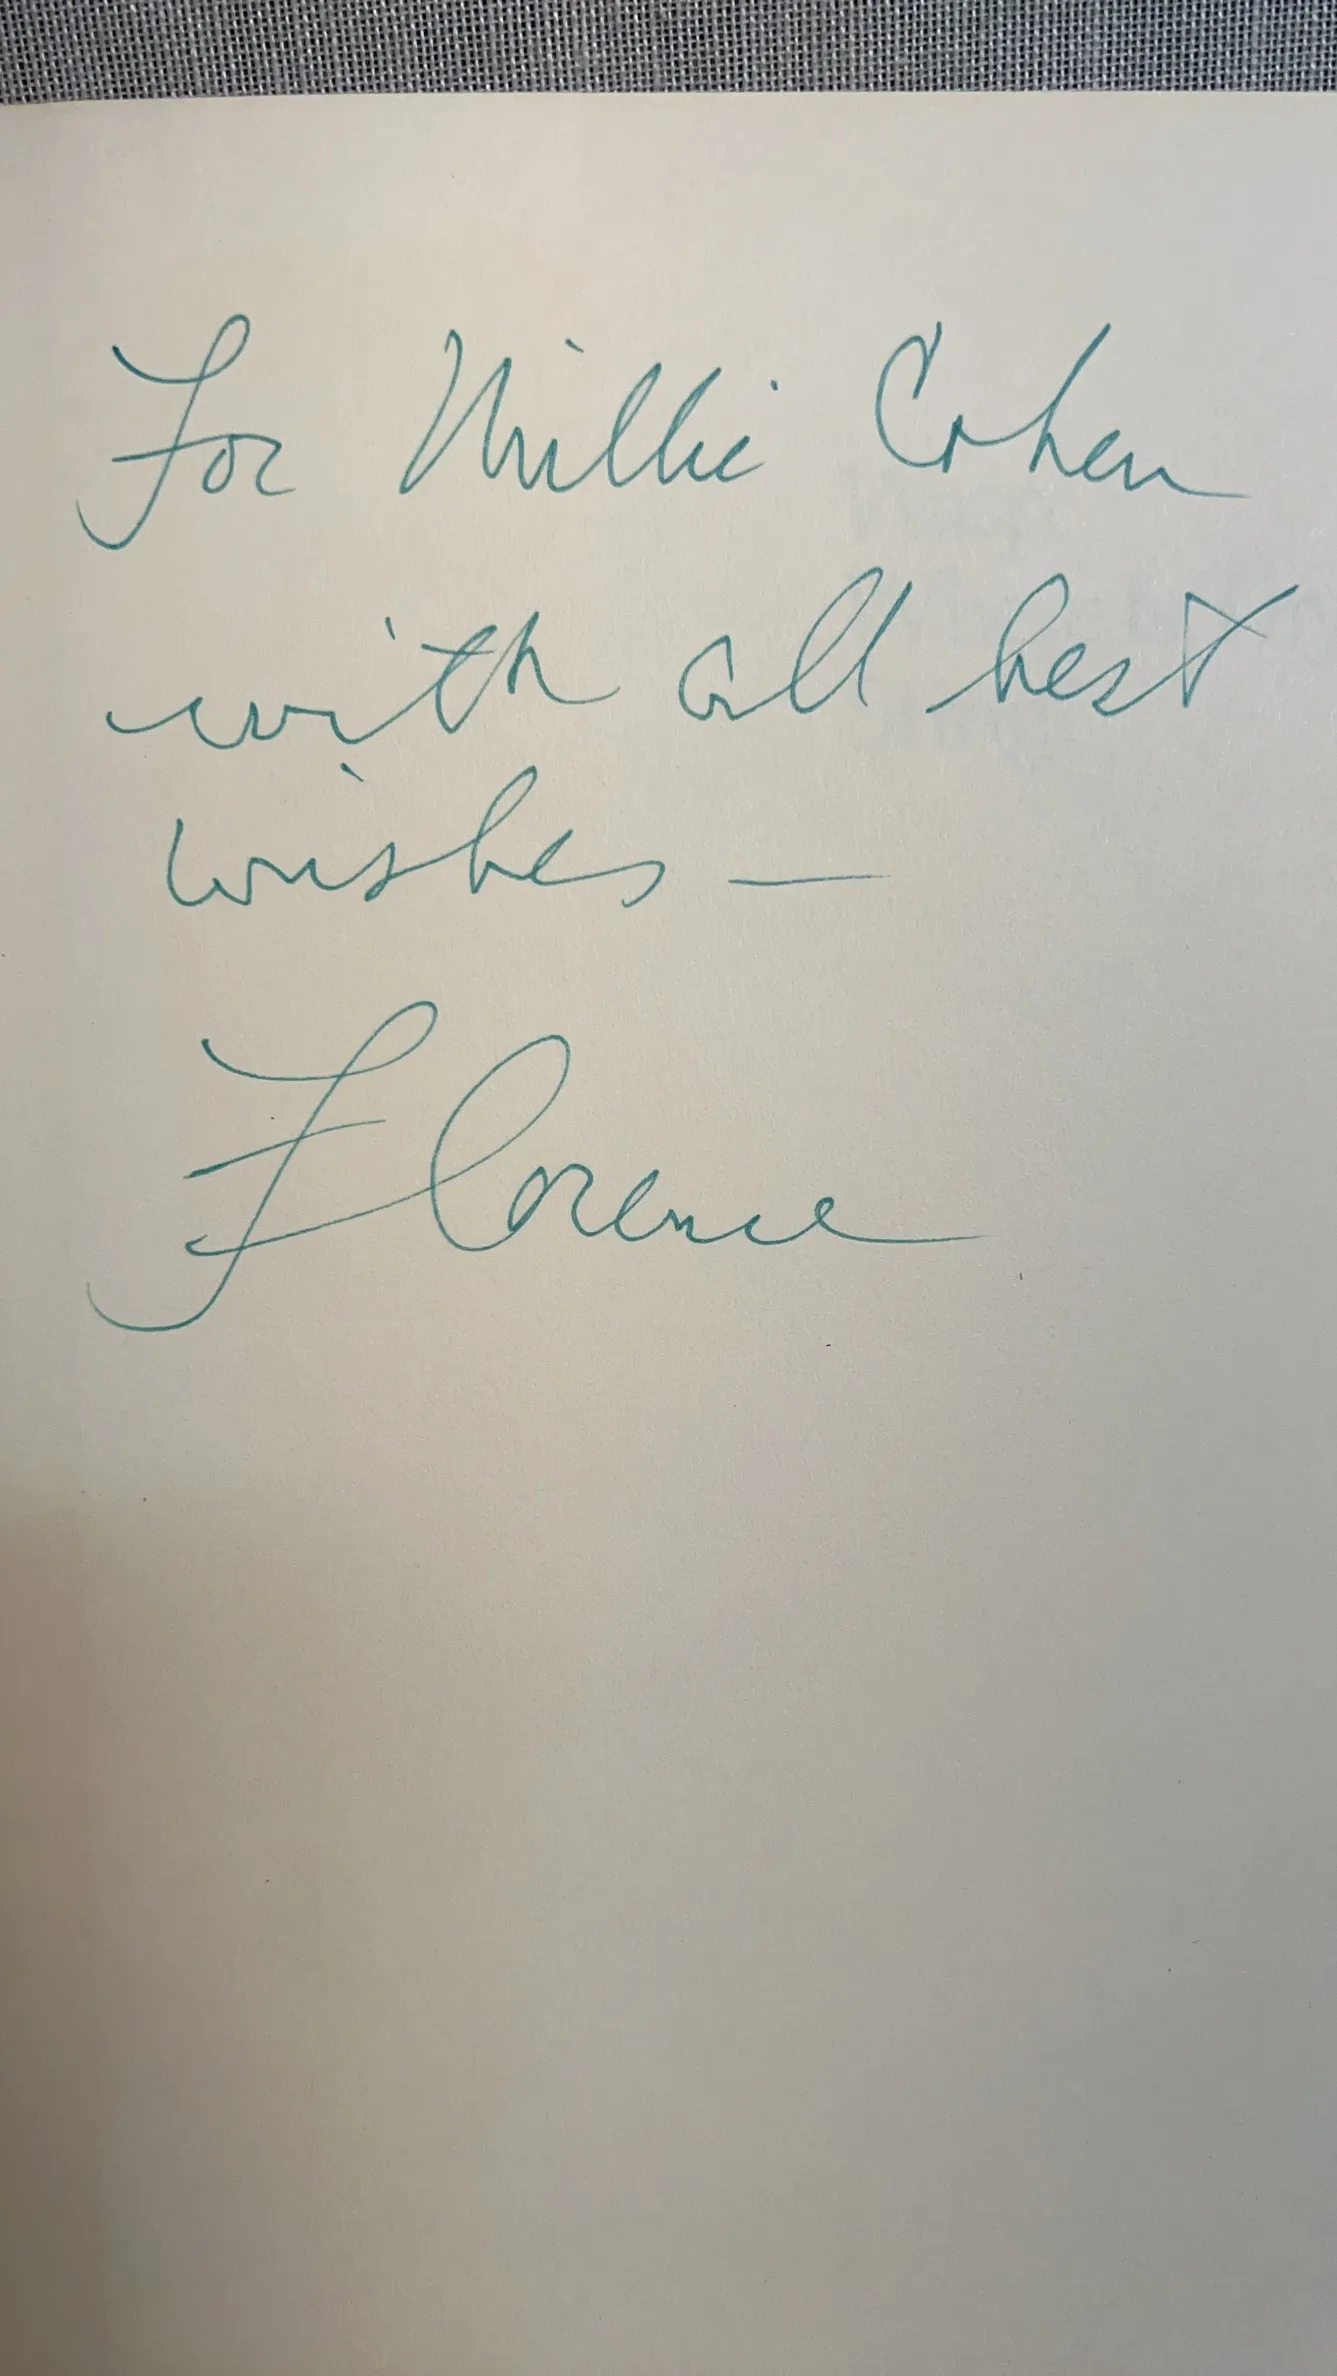 For Millie Cohen
with all best
wishes —
Florence